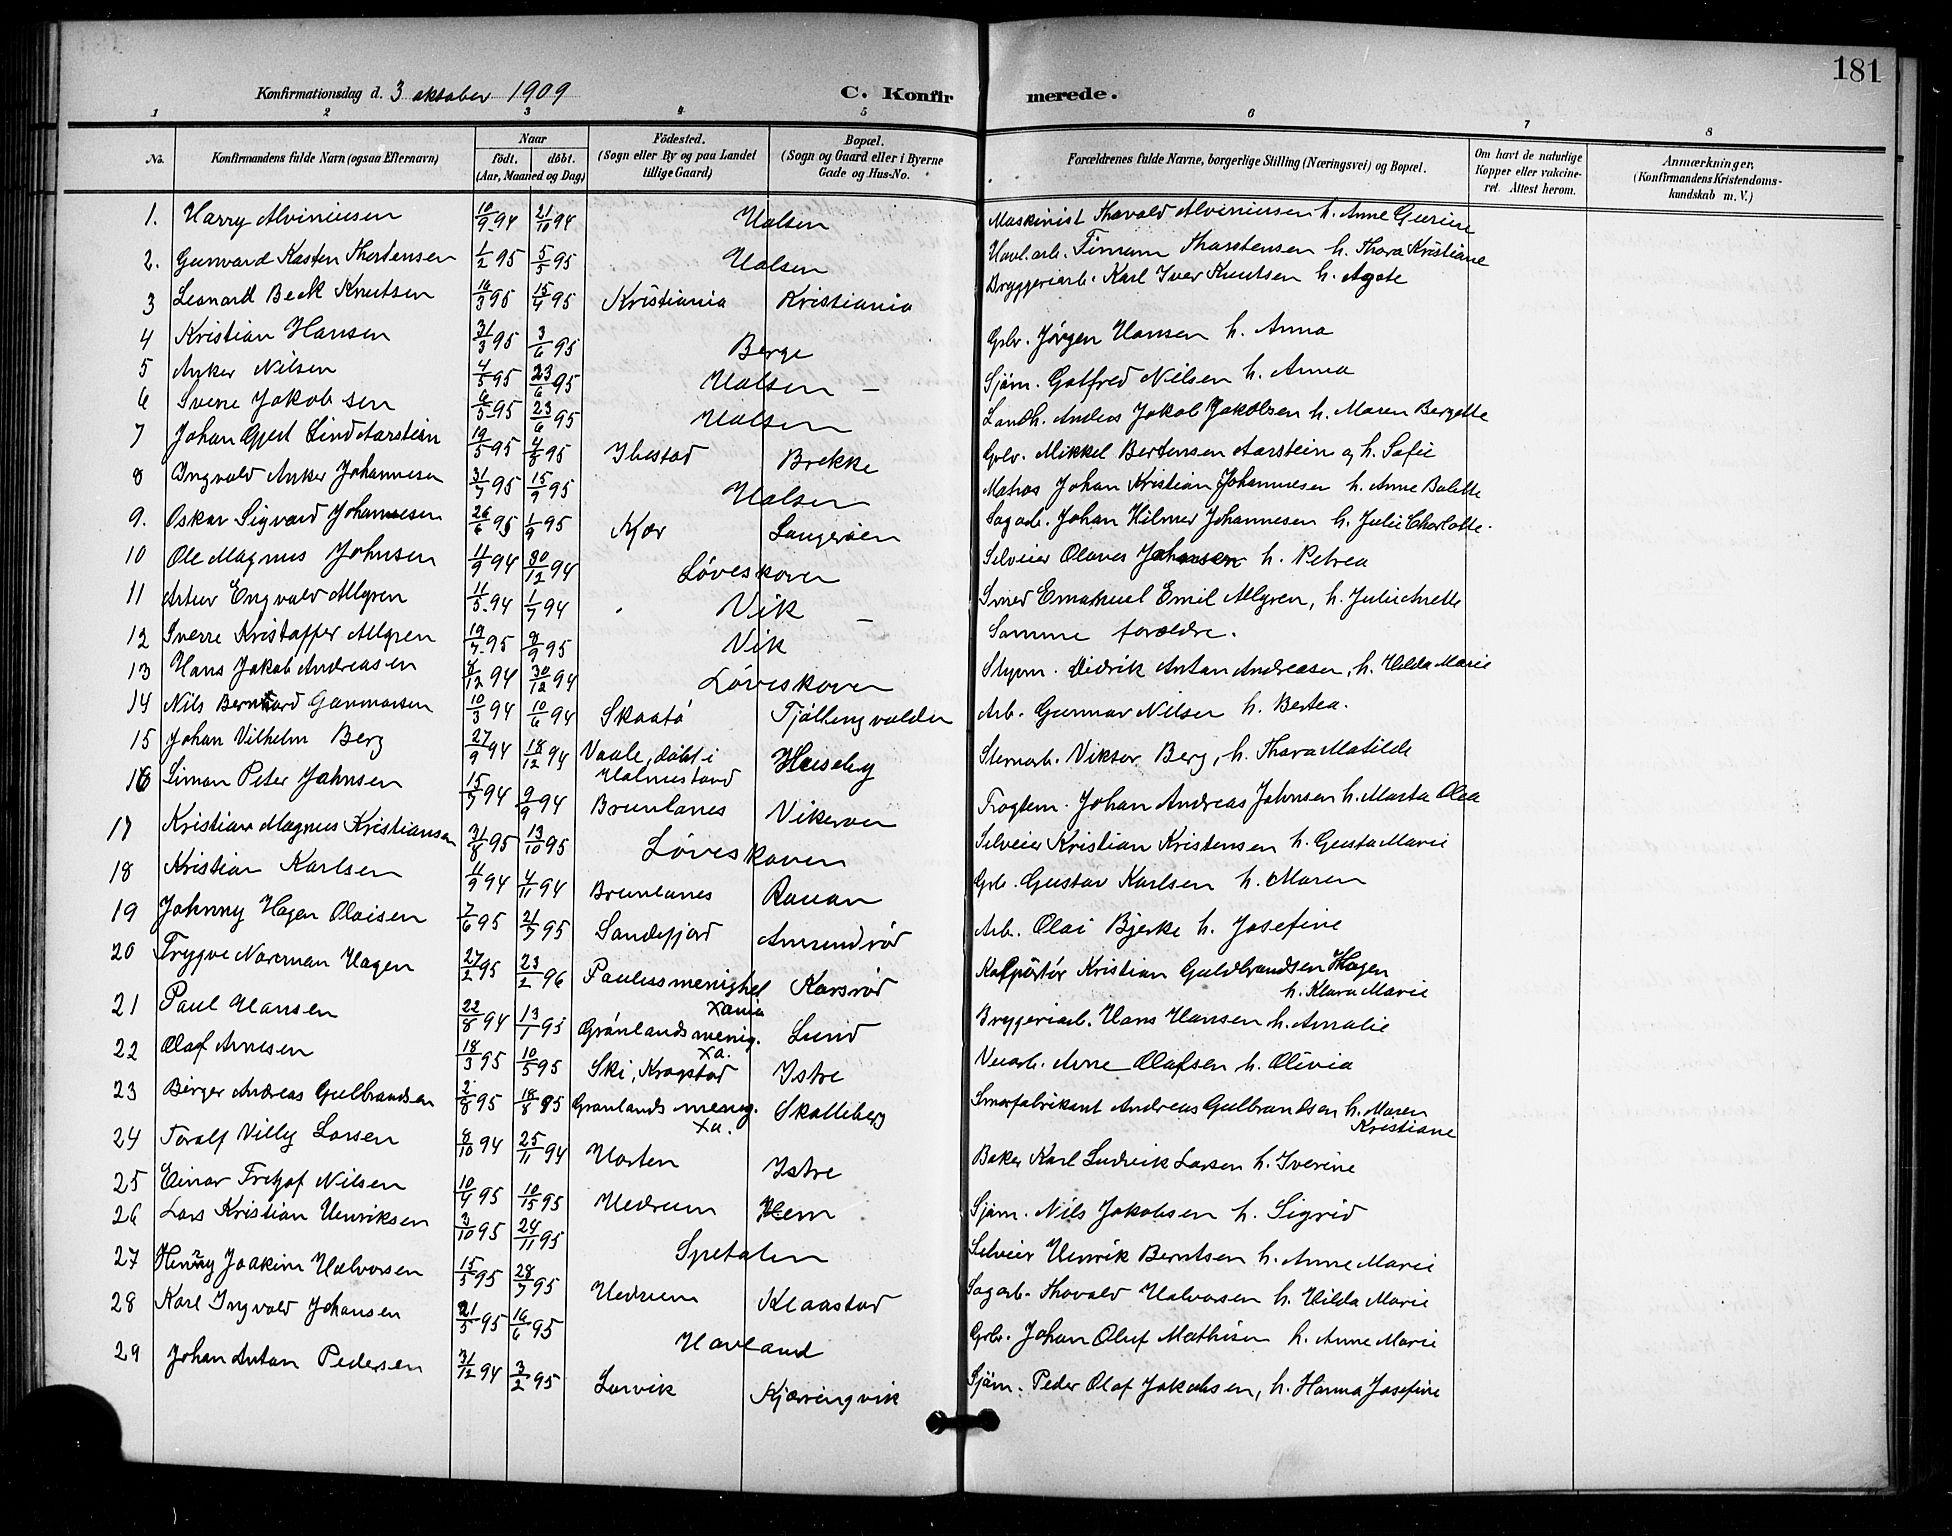 181
Konfirmationsdag d. 3 oktober 1909 C. Konfirmerede.
1 2 3 4 5 6 7 8
No. Konfirmandens fulde Navn (ogsaa Efternavn) Naar født. døbt. (Aar, Maaned og Dag) Födested. (Sogn eller By og paa Landet tillige Gaard) Bopæl. (Sogn og Gaard eller i Byerne Gade og Hus-No. Forældrenes fulde Navne, borgerlige Stilling (Næringsvei) og Bopæl. Om havt de naturlige Kopper eller vakcineret. Attest herom. Anmærkninger, (Konfirmandens Kristendomskundskab m. V.)
1. Harry Alviniusen 10/9 94 21/10 94 Halsen Maskinist Thorvald Alviniusen h. Anne Gurine
2. Gunvard Kasten Thortensen 1/2 95 5/5 95 Halsen Havl.arb. Timann Thorstensen h. Thora Kristiane
3 Leonard Beck Knutsen 16/3 95 15/4 95 Kristiania Kristiania Bryggeriarb. Karl Iver Knutsen h. Agate
4 Kristian Hansen 31/3 95 3/6 95 Berge Gbr. Jørgen Hansen h. Anna
5 Anker Nilsen 4/5 95 23/6 95 Halsen - Sjøm. Gotfred Nilsen h. Anna
6 Sverre Jakobsen 6/5 95 23/6 95 Halsen Landh. Anders Jakob Jakobsen h. Maren Bergette
7 Johan Gjert Lind Aarstein 19/5 95 4/8 95 Ibestad Brekke Gbr. Mikkel Bertensen Aarstein og h. Sofie
8 Ingvald Anker Johannesen 31/7 95 15/9 95 Halsen Matros Johan Kristian Johannesen h. Anne Bolette
9. Oskar Sigvard Johannesen 26/6 95 1/9 95 Kjær Langeröen Sagarb. Johan Hilmer Johannesen h. Julie Charlotte.
10 Ole Magnus Johnsen 11/9 94 30/12 94 Løveskoven Selveier Olaves Johnsen h. Petrea
11 Artur Engvald Allgren 11/5 94 1/7 94 Vik - Smed Emanuel Emil Allgren, h. Julie Anette
12 Sverre Kristoffer Allgren 19/7 95 8/9 95 Vik Samme forældre.
13 Hans Jakob Andreasen 8/12 94 30/12 94 Løveskoven Styrm. Didrik Anton Andreasen, h. Hilda Marie
14 Nils Bernhard Gunnarsen 10/3 94 10/6 94 Skaatø Tjøllingvolden Arb. Gunnar Nilsen h. Bertea.
15 Johan Vilhelm Berg 27/9 94 18/12 94 Vaale, döbt i Holmestrand Huseby Stenarb. Viktor Berg, h. Thora Matilde
16 Simon Peter Johnsen 15/7 94 9/9 94 Brunlanes Vikeroen Fragtem. Johan Andreas Johnsen h. Marta Olea
17 Kristian Magnus Kristiansen 31/8 95 13/10 95 Løveskoven Selveier Kristian Kristensen h. Gusta Marie
18 Kristian Karlsen 11/9 94 4/11 94 Brunlanes Rauan Gbr. Gustav Karlsen h. Maren
19 Johnny Hagen Olaisen 7/6 95 21/7 95 Sandefjord Amundrød Arb. Olai Bjerke h. Josefine
20 Trygve Norman Hagen 27/2 95 23/2 96 Paulusmenighet Xania Korsrød Kolportør Kristian Guldbrandsen Hagen h. Klara Marie
21 Paul Hansen 22/8 94 13/1 95 Grønlands menig. Xa. Lund Bryggeriarb. Hans Hansen h. Amalie
22 Olaf Arnesen 18/3 95 10/5 95 Ski, Kragstad Istre Veiarb. Arne Olafsen h. Olivia
23 Birger Andreas Gulbrandsen 2/8 95 18/8 95 Grønlands menig. Xa. Skalleberg Smørfabrikant Andreas Gulbrandsen h. Maren Kristiane
24 Toralf Villy Larsen 8/10 94 25/11 94 Horten Istre Baker Karl Ludvik Larsen h. Iverine
25 Einar Fritjof Nilsen 10/4 95 10/15 95 Hedrum Hem Sjøm. Nils Jakobsen h. Sigrid
26 Lars Kristian Henriksen 3/10 95 24/11 95 Spetalen Selveier Henrik Berntsen h. Anne Marie
27 Henry Joakim Halvorsen 15/5 95 28/7 95 Hedrum Klaastad Sagarb. Thorvald Halvorsen h. Hilda Marie
28 Karl Ingvald Johansen 21/5 95 16/6 95 Havland Gbr. Johan Oluf Mathisen h. Anne Marie
29 Johan Anton Pedersen 31/12 94 3/2 95 Larvik Kjærringvik Sjøm. Peder Olaf Jakobsen, h. Hanna Josefine